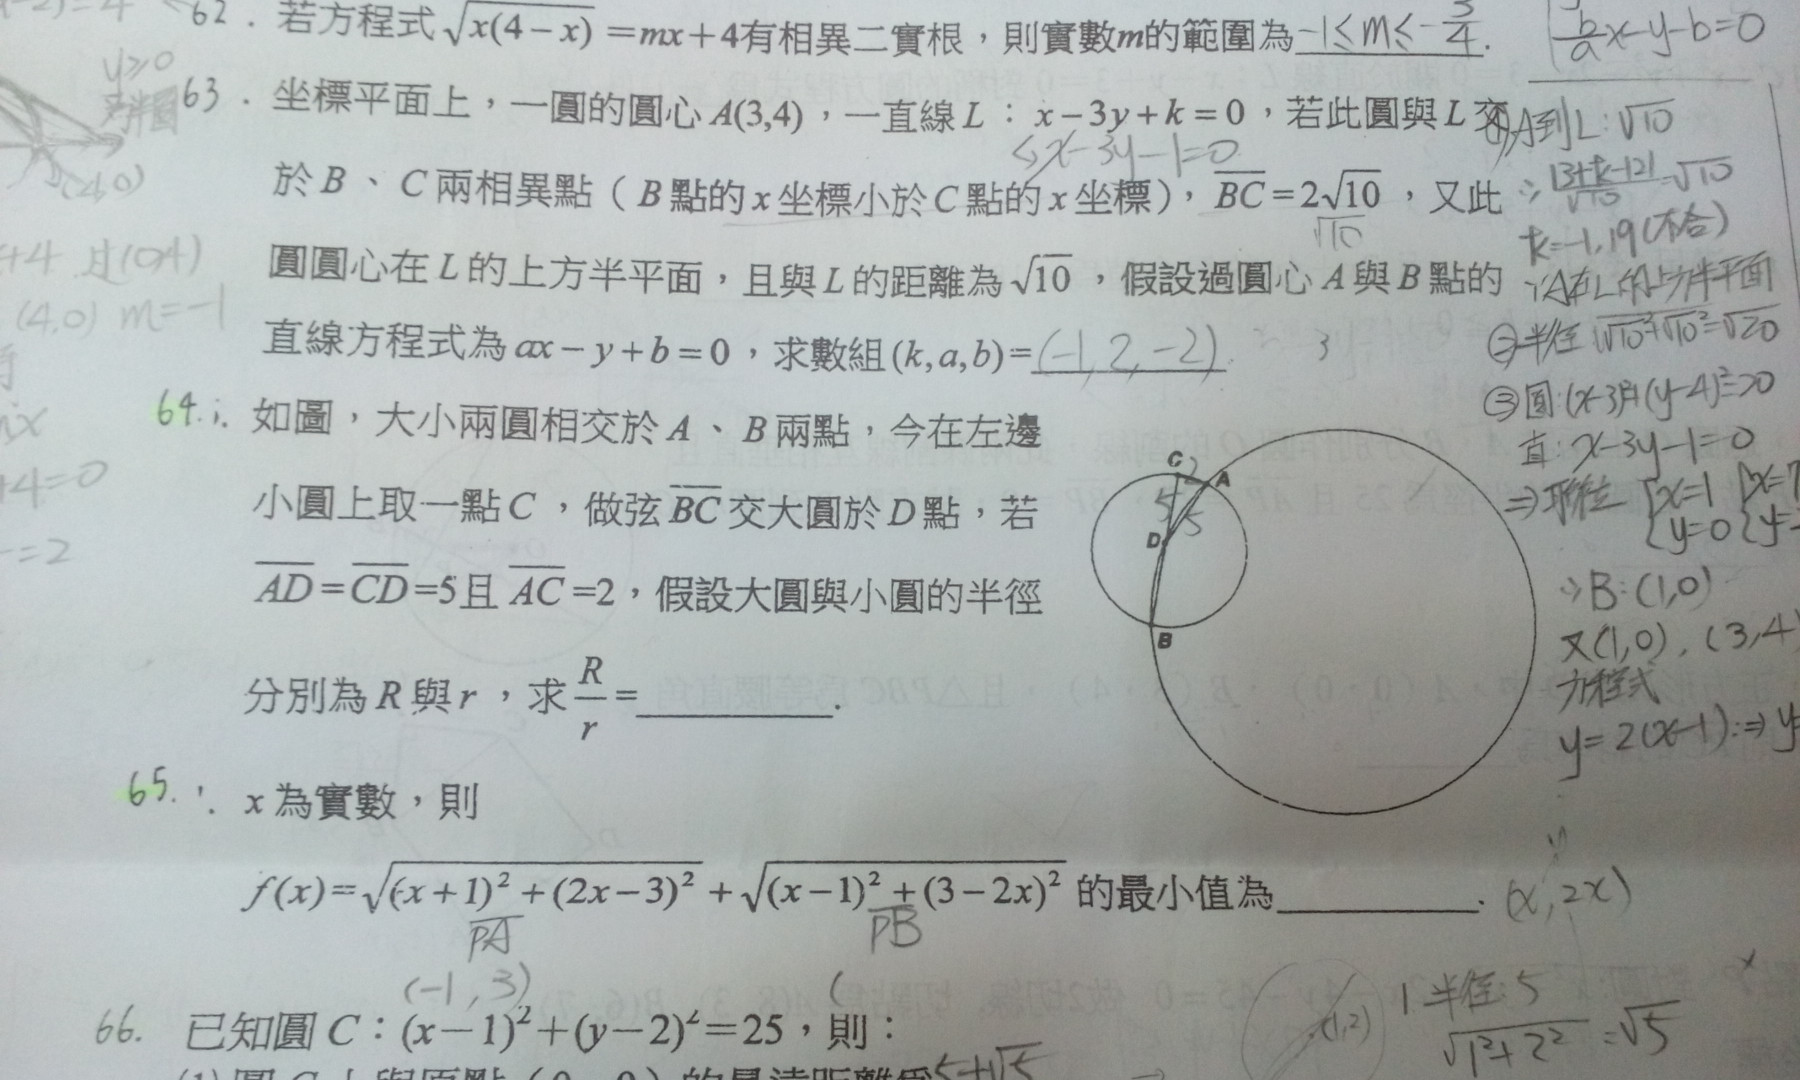 62. 若方程式√x(4-x) =mx+4有相異二實根，則實數m的範圍為 -1≤m≤-3/4.
b/a x-y-b=0
y≥0
半圓
(4,0)
+4 过(0,4)
(4,0) m=-1
+4=0
=2
63. 坐標平面上，一圓的圓心A(3,4)，一直線L：x-3y+k=0，若此圓與L交
x-3y-1=0
於B、C兩相異點（B點的x坐標小於C點的x坐標），BC=2√10，又此
√10
圓圓心在L的上方半平面，且與L的距離為√10，假設過圓心A與B點的
直線方程式為ax-y+b=0，求數組(k,a,b)=(-1,2,-2).
3
A到L:√10
|3+k-12|/√10=√10
k=-1,19(不合)
∵A在L的上方半平面
② 半徑 √√10²+√10²=√20
③ 圓:(x-3)²+(y-4)²=20
直:x-3y-1=0
⇒联立 {x=1 {x=7
{y=0 {y=
∴B:(1,0)
又(1,0),(3,4
方程式
y=2(x-1)⇒y
64. 如圖，大小兩圓相交於A、B兩點，今在左邊
小圓上取一點C，做弦BC交大圓於D點，若
AD=CD=5且AC=2，假設大圓與小圓的半徑
分別為R與r，求R/r=
C 2 A
5 5
D
B
65. x為實數，則
f(x)=√(x+1)²+(2x-3)² +√(x-1)²+(3-2x)² 的最小值為 .
(x,2x)
PA PB
(-1,3) (
66. 已知圓C：(x-1)²+(y-2)²=25，則：
(1,2)
1.半徑:5
√1²+2²=√5
(1)圓C上與原點（0，0）的最遠距離為5+√5